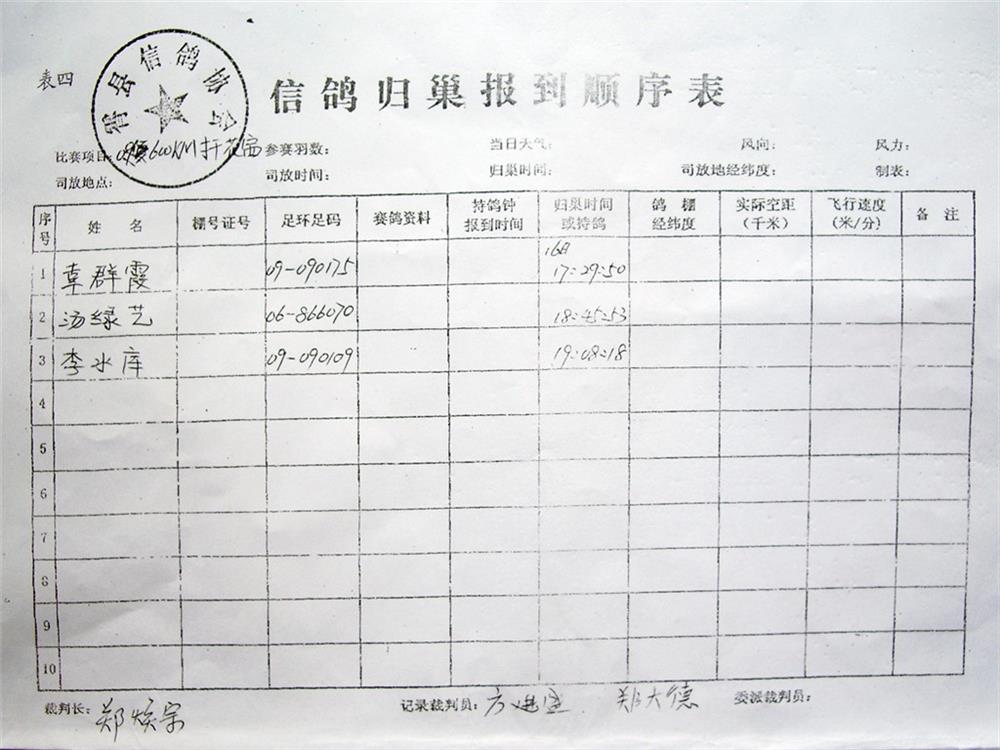 表四
县信鸽协会
信鸽归巢报到顺序表
比赛项目: 600KM 参赛羽数: 当日天气: 风向: 风力:
司放地点: 司放时间: 归巢时间: 司放地经纬度: 制表:
序号 姓名 棚号证号 足环足码 赛鸽资料 持鸽钟报到时间 归巢时间或持鸽 鸽棚经纬度 实际空距(千米) 飞行速度(米/分) 备注
16日
1 章群霞 09-090175 17:29:50
2 汤绿艺 06-866070 18:45:53
3 李水库 09-090109 19:08:18
4
5
6
7
8
9
10
裁判长: 郑焕宗 记录裁判员: 郑大德 委派裁判员: